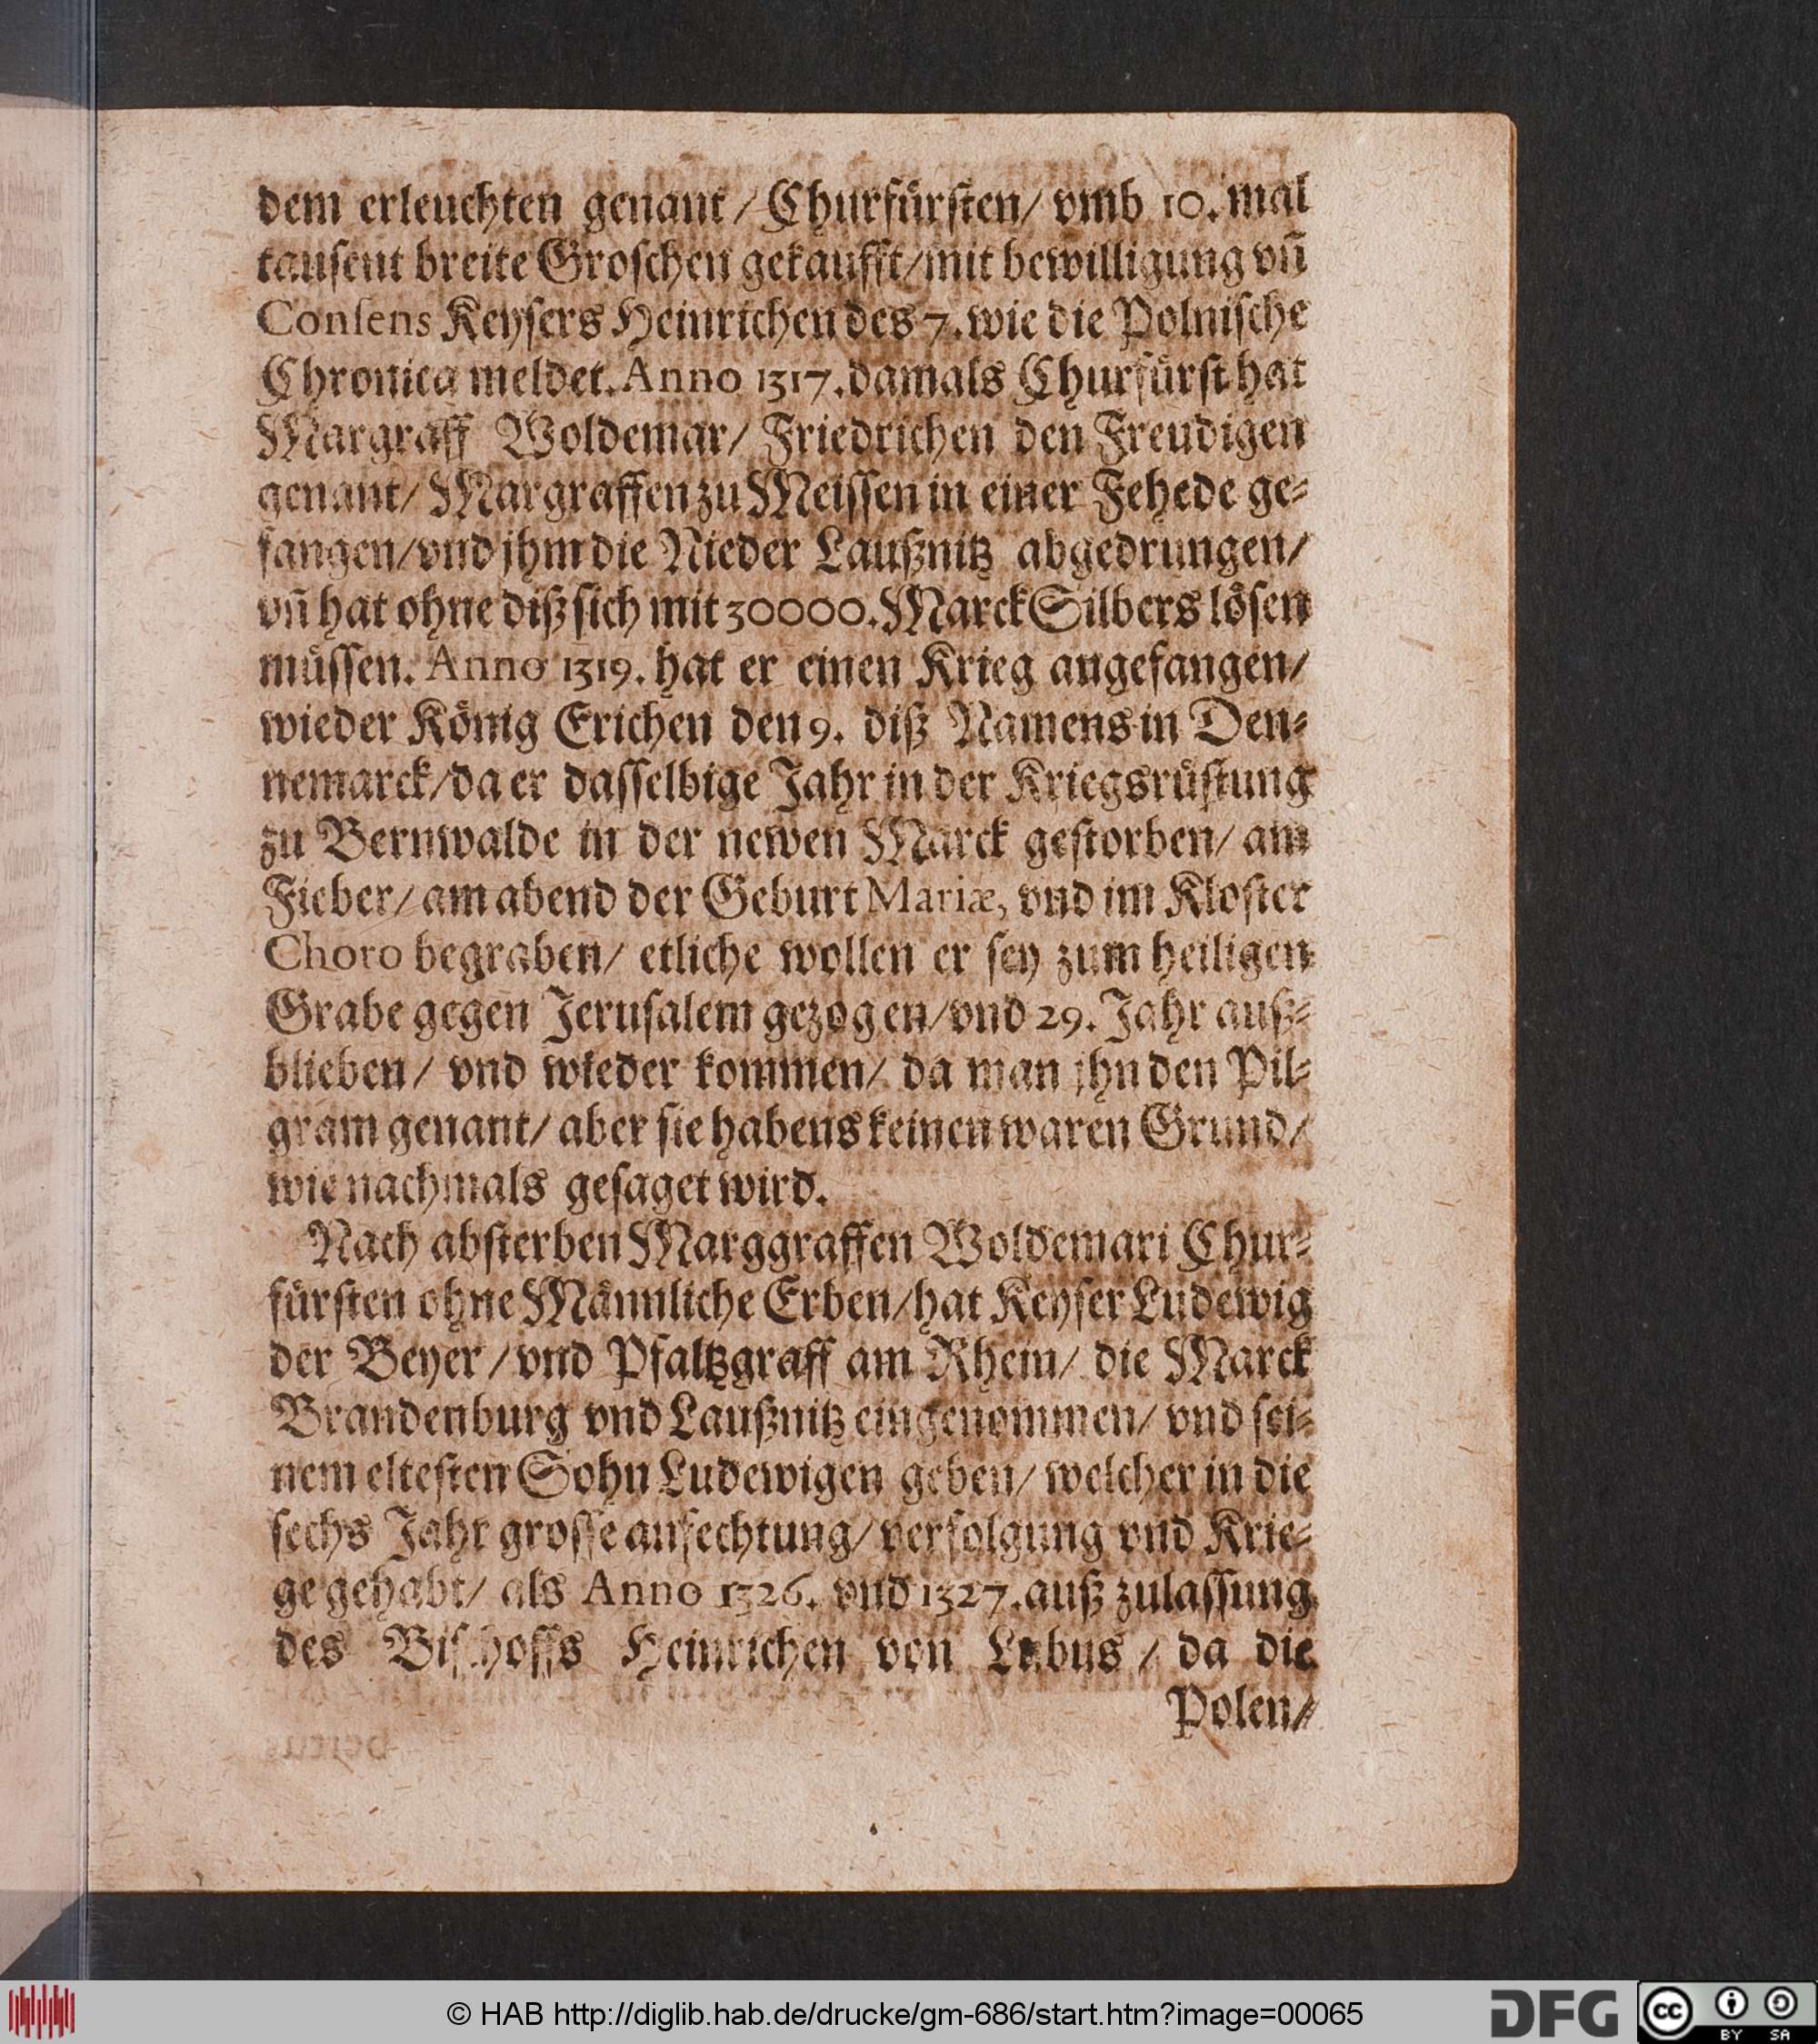 dem erleuchten genant / Churfürsten / vmb 10. mal
tausent breite Groschen gekaufft / mit bewilligung vñ
Consens Keysers Heinrichen des 7. wie die Polnische
Chronica meldet. Anno 1317. damals Churfürst hat
Margraff Woldemar / Friedrichen den Freudigen
genant / Margraffen zu Meissen in einer Fehede ge-
fangen / vnd jhm die Nieder Laußnitz abgedrungen /
vñ hat ohne diß sich mit 30000. Marck Silbers lösen
müssen. Anno 1319. hat er einen Krieg angefangen /
wieder König Erichen den 9. diß Namens in Den-
nemarck / da er dasselbige Jahr in der Kriegsrüstung
zu Bernwalde in der newen Marck gestorben / am
Fieber / am abend der Geburt Mariæ, vnd im Kloster
Choro begraben / etliche wollen er sey zum heiligen
Grabe gegen Jerusalem gezogen / vnd 29. Jahr auß-
blieben / vnd wieder kommen / da man jhn den Pil-
gram genant / aber sie habens keinen waren Grund /
wie nachmals gesaget wird.
Nach absterben Marggraffen Woldemari Chur-
fürsten ohne Männliche Erben / hat Keyser Ludewig
der Beyer / vnd Pfaltzgraff am Rhein / die Marck
Brandenburg vnd Laußnitz eingenommen / vnd sei-
nem eltesten Sohn Ludewigen geben / welcher in die
sechs Jahr grosse anfechtung / verfolgung vnd Krie-
ge gehabt / als Anno 1326. vnd 1327. auß zulassung
des Bischoffs Heinrichen von Lebus / da die
Polen /
© HAB http://diglib.hab.de/drucke/gm-686/start.htm?image=00065
DFG
cc BY SA